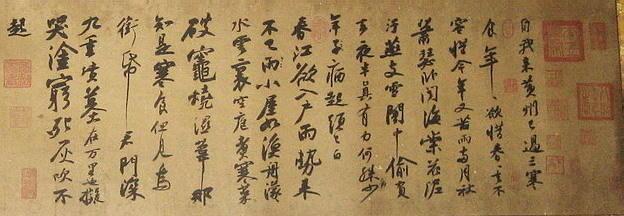 自我來黃州已過三寒
食年〻欲惜春〻去不
容惜今年又苦雨兩月秋
蕭瑟臥聞海棠花泥
汙燕支雪闇中偷負
去夜半真有力何殊少
年子病起頭已白
春江欲入戶雨勢來
不已雨小屋如漁舟濛〻
水雲裏空庖煮寒菜
破竈燒濕葦那
知是寒食但見烏
銜帋君門深
九重墳墓在萬里也擬
哭塗窮死灰吹不
起